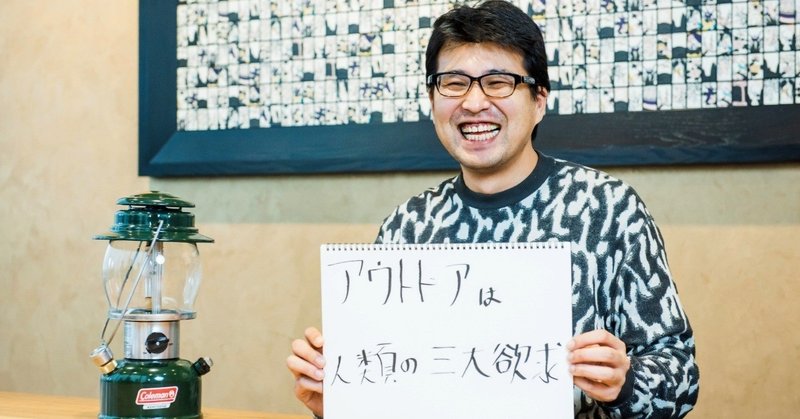 アウトドアは
人類の三大欲求
Coleman